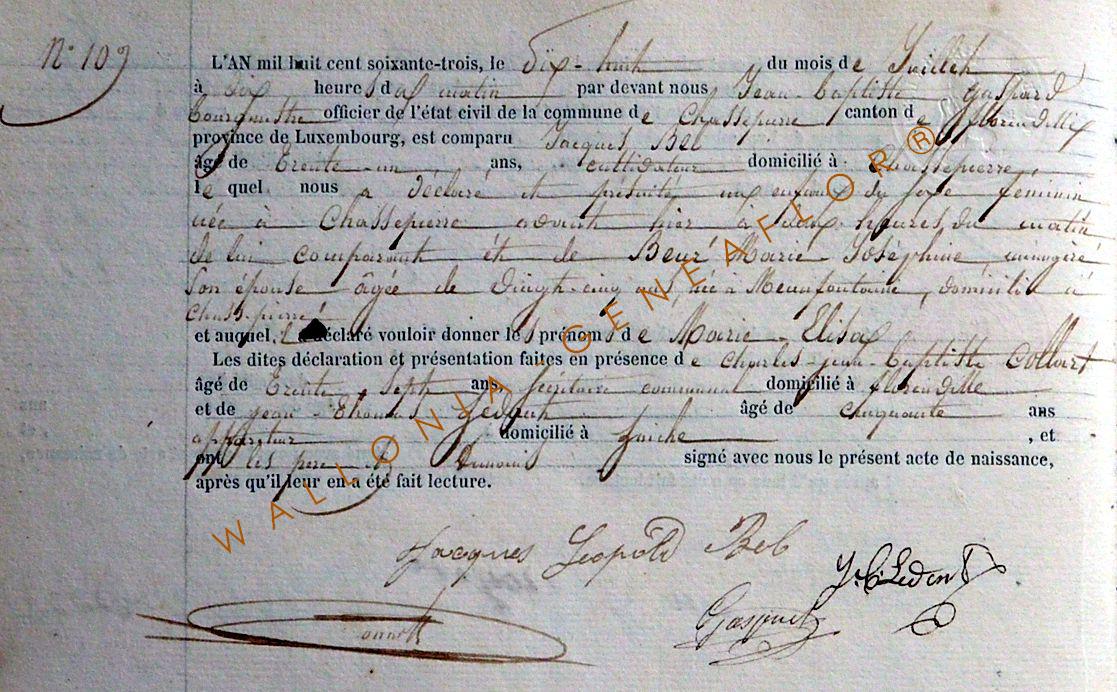 N° 109
L'AN mil huit cent soixante-trois, le dix-huit du mois de Juillet
à dix heures du matin par devant nous Jean-baptiste Gaspard
bourgmestre officier de l'état civil de la commune de Chassepierre canton de florenville
province de Luxembourg, est comparu Jacques Bel
âgé de trente-un ans, cultivateur domicilié à Chassepierre
le quel nous a déclaré et présenté un enfant du sexe féminin
née à Chassepierre avant hier à deux heures du matin
de lui comparant et de Beur Marie Joséphine menagère
son épouse âgée de vingt-cinq ans, née à Menufontaine, domicilié à
Chassepierre
et auquel il a déclaré vouloir donner les prénoms de Marie-Elisa
Les dites déclaration et présentation faites en présence de Charles-jean-baptiste Collart
âgé de trente sept ans secrétaire communal domicilié à florenville
et de jean-thomas Ledent âgé de cinquante ans
appariteur domicilié à laiche , et
ont les père et témoins signé avec nous le présent acte de naissance,
après qu'il leur en a été fait lecture.
Jacques Leopold Bel
J. T. Ledent
Gaspard
WALLONIA GENEAFLOR ®